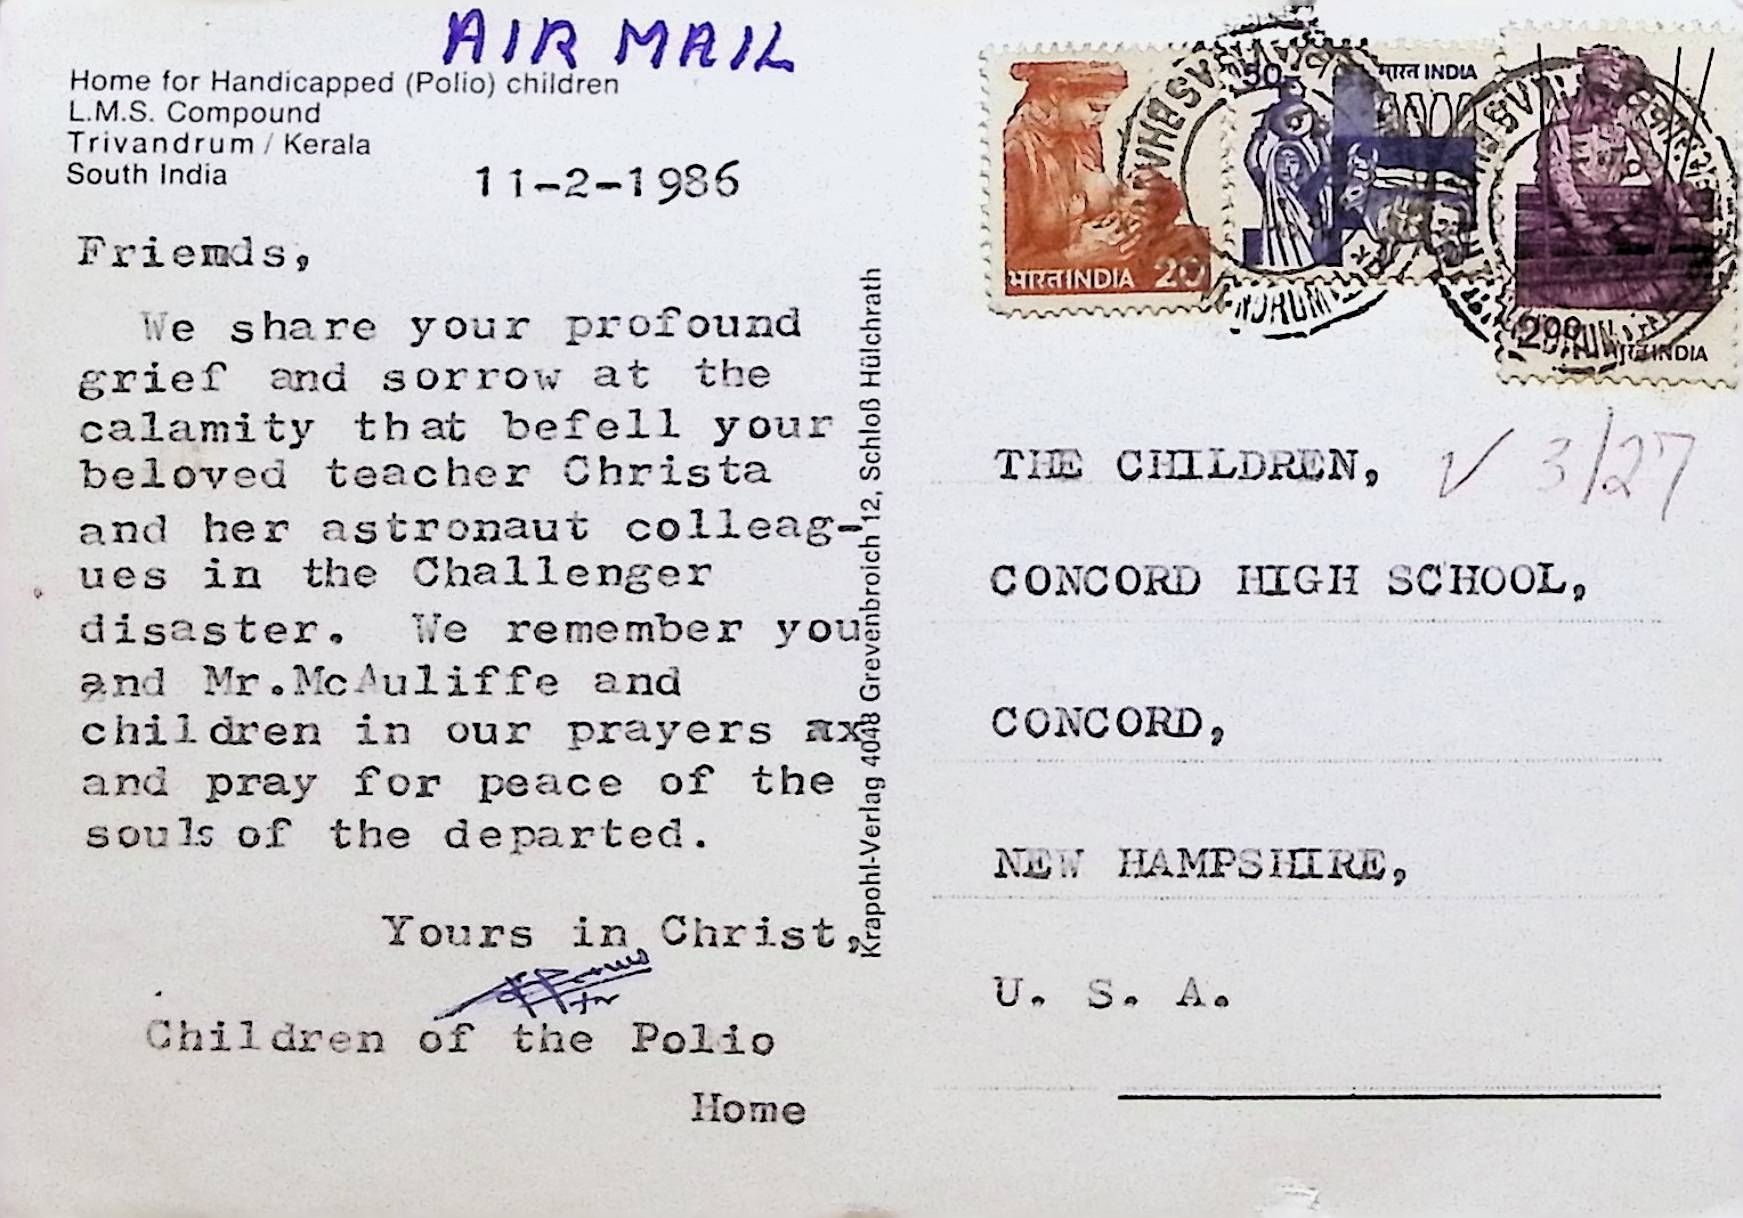 AIR MAIL
Home for Handicapped (Polio) children
L.M.S. Compound
Trivandrum / Kerala
South India
11-2-1986
Friends,
We share your profound
grief and sorrow at the
calamity that befell your
beloved teacher Christa
and her astronaut colleag-
ues in the Challenger
disaster. We remember you
and Mr.McAuliffe and
children in our prayers ax
and pray for peace of the
souls of the departed.
Yours in Christ,
for
Children of the Polio
Home
Krapohl-Verlag 4048 Grevenbroich 12, Schloß Hülchrath
भारत INDIA 20
50
भारत INDIA
200
भारत INDIA
THE CHILDREN,
✓ 3/27
CONCORD HIGH SCHOOL,
CONCORD,
NEW HAMPSHIRE,
U. S. A.